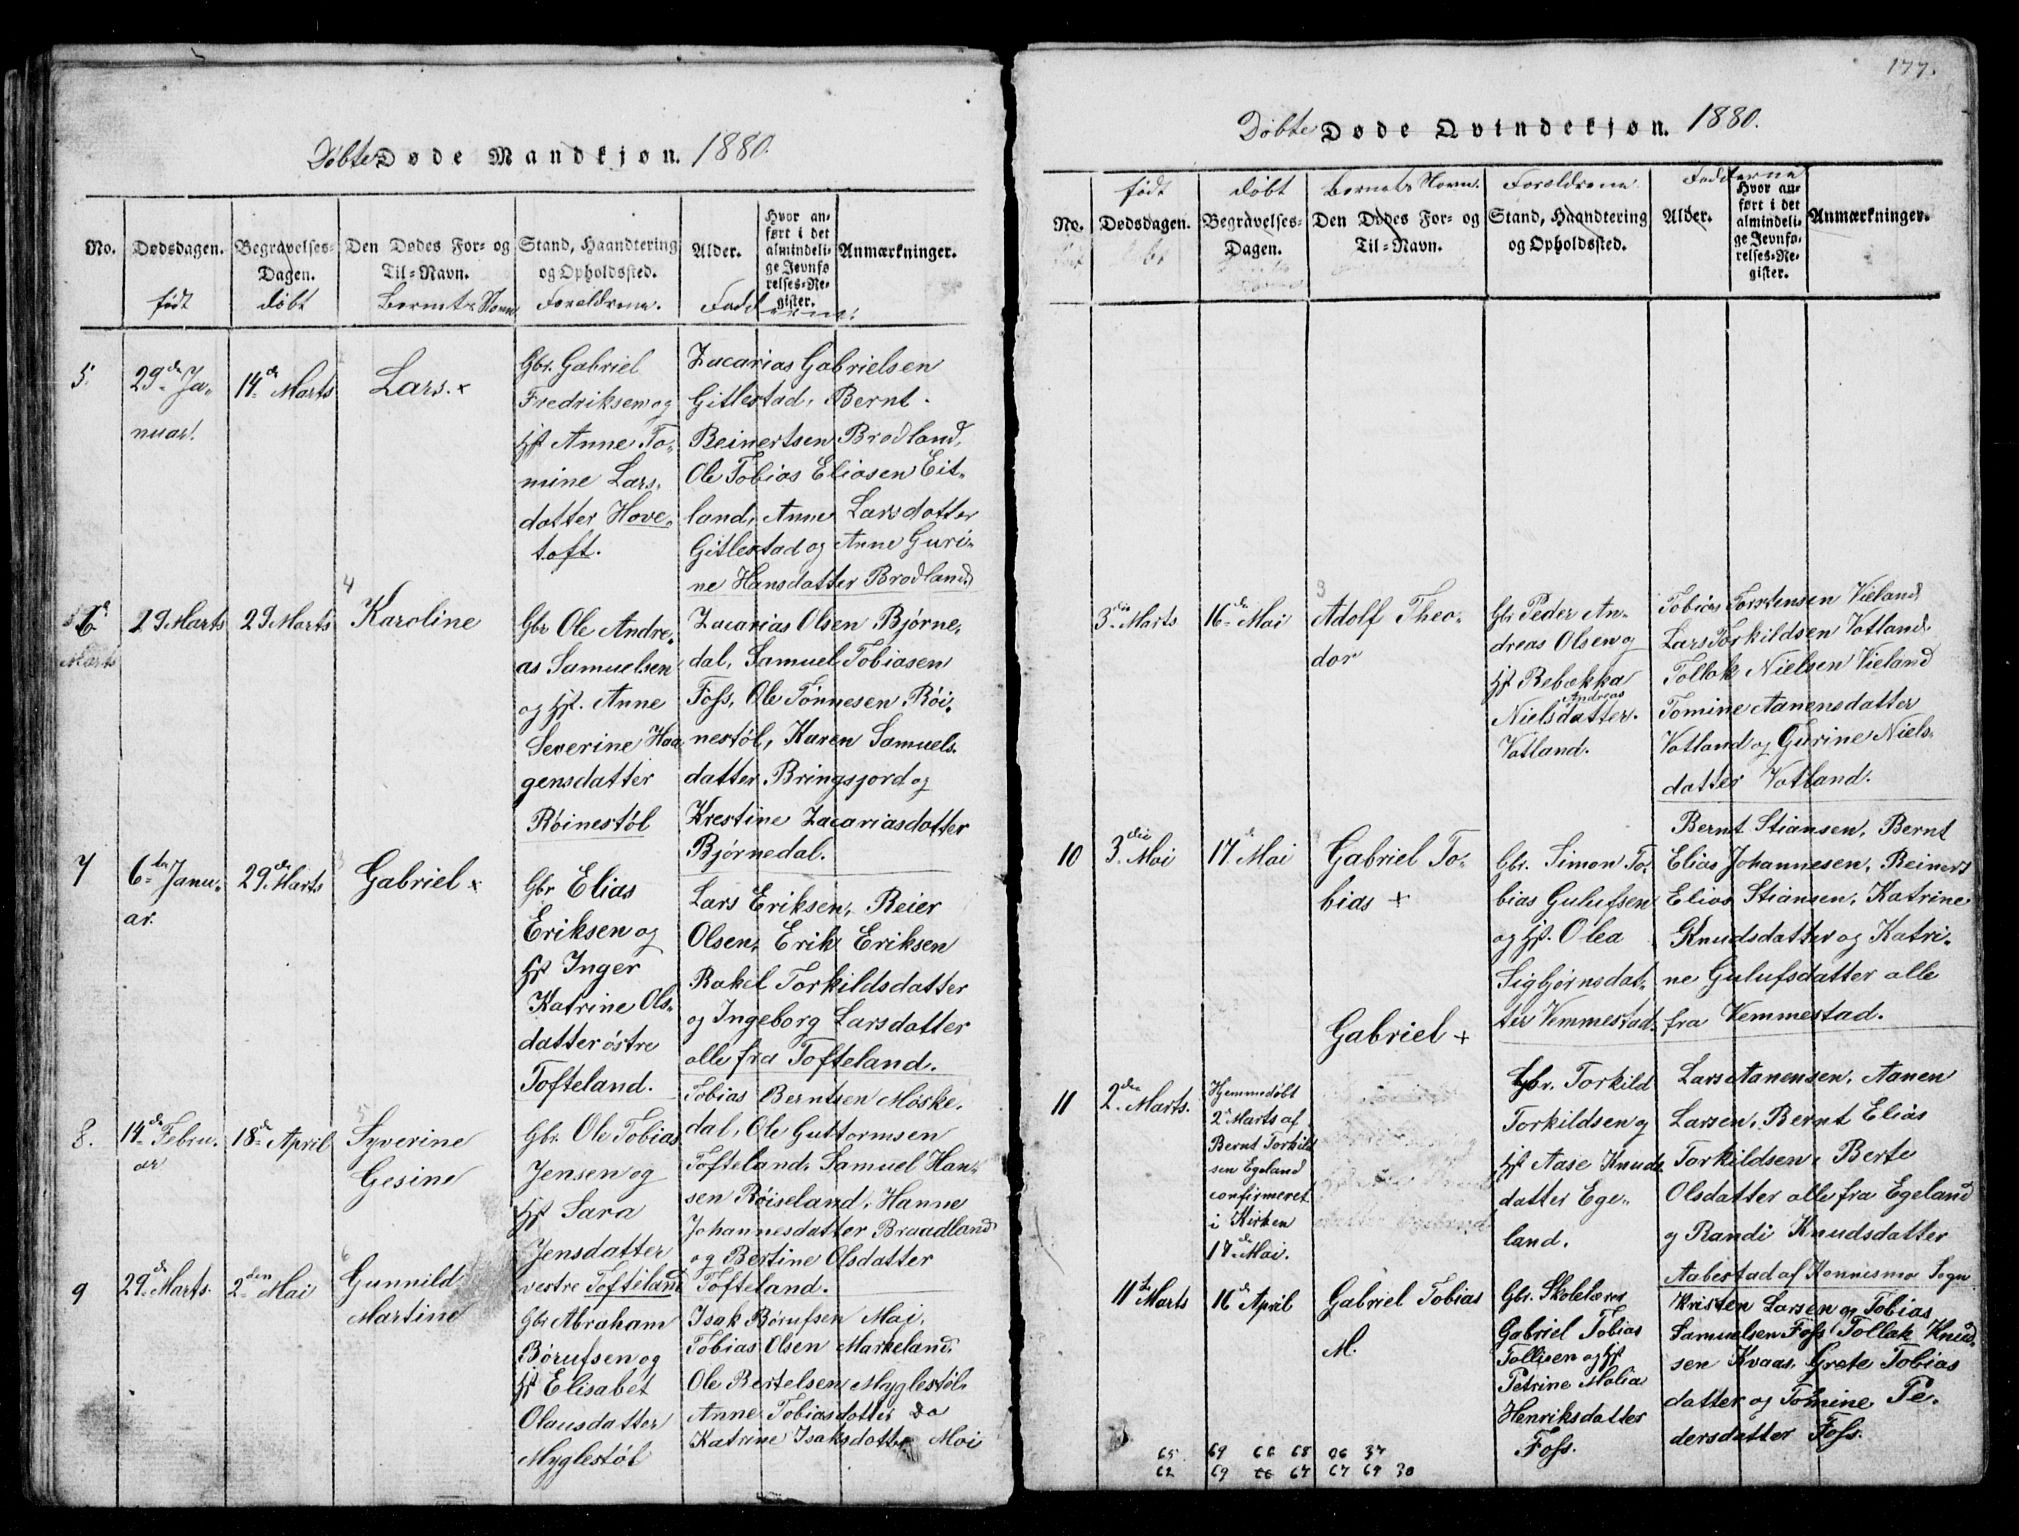 Døbte Døde Mandkjøn. 1880.
No.
Dødsdagen.
født
Begravelses-
Dagen.
døbt
Den Dødes For- og
Til-Navn.
Barnets Navn.
Stand, Haandtering
og Opholdssted.
Forældrene.
Alder.
Hvor an-
ført i det
almindeli-
ge Jevnfø
relses-Re-
gister.
Fadderne.
Anmærkninger.
5.
29de Ja-
nuar.
14de Marts
Lars. x
Gbr. Gabriel
Fredriksen og
Hst Anne To-
mine Lars-
datter Hove-
toft.
Zacarias Gabrielsen
Gitlestad, Bernt
Beinertsen Brodland,
Ole Tobias Eliasen Eit-
land, Anne Larsdatter
Gitlestad og Anne Guri-
ne Hansdatter Brodland
6.
Marts
29 Marts
29 Marts
4
Karoline
Gbr Ole Andre-
as Samuelsen
og Hst. Anne
Severine Haa-
gensdatter
Røinestøl
Zacarias Olsen Bjørne-
dal, Samuel Tobiasen
Foss, Ole Tønnesen Røi-
nestøl, Karen Samuels-
datter Bringsjord og
Krestine Zacariasdatter
Bjørnedal.
7
6te Janu-
ar.
29de Marts
Gabriel x
Gbr Elias
Eriksen og
Hst Inger
Katrine Ols-
datter østre
Tofteland.
Lars Eriksen, Reier
Olsen, Erik Eriksen
Rakel Torkildsdatter
og Ingeborg Larsdatter
alle fra Tofteland.
8.
14de Febru-
ar
18de April
5
Syverine
Gesine
Gbr. Ole Tobias
Jensen og
Hst Sara
Jensdatter
vestre Tofteland
Tobias Berntsen Møske-
dal, Ole Guttormsen
Tofteland, Samuel Han-
sen Røiseland, Hanne
Johannesdatter Braadland
og Bertine Olsdatter
Tofteland.
9
29de Marts.
2den Mai
6
Gunnild
Martine
Gbr Abraham
Børufsen og
Hst Elisabet
Olausdatter
Myglestøl
Isak Børufsen Moi,
Tobias Olsen Markeland,
Ole Bertelsen Myglestøl,
Anne Tobiasdatter do
Katrine Isaksdatter Moi
177.
Døbte Døde Qvindekjøn. 1880.
No.
født
Dødsdagen.
døbt
Begravelses-
Dagen.
Barnets Navn.
Den Dødes For- og
Til-Navn.
Forældrene.
Stand, Haandtering
og Opholdssted.
Fadderne
Alder.
Hvor an-
ført i det
almindeli-
ge Jevnfø-
relses-Re-
gister.
Anmærkninger.
3die Marts
16de Mai
3
Adolf Theo-
dor
Gbr Peder An-
dreas Olsen og
Hst Rebekka
Andreas
Nielsdatter.
Vatland.
Tobias Torstensen Vieland
Lars Torkildsen Vatland,
Tollak Nielsen Vieland
Tomine Aanensdatter
Vatland og Gurine Niels-
datter Vatland.
10
3die Mai
17de Mai
Gabriel To-
bias +
Gbr. Simon To-
bias Gulufsen
og Hst. Olea
Sigbjørnsdat-
ter Vemmestad
Bernt Stiansen, Bernt
Elias Johannesen, Reinert
Elias Stiansen, Katrine
Knudsdatter og Katri-
ne Gulufsdatter alle
fra Vemmestad.
11
2den Marts.
Hjemmedøbt
2den Marts af
Bernt Torkild
sen Egeland
confirmeret
i Kirken
17de Mai.
Gabriel +
Gbr. Torkild
Torkildsen og
Hst Aase Knuds
datter Ege-
land.
Lars Aanensen, Aanen
Larsen, Bernt Elias
Torkildsen, Berte
Olsdatter alle fra Egeland
og Randi Knudsdatter
Aabestad af Konnismo Sogn
11te Marts
16de April
Gabriel Tobias
M.
Gbr. Skolelærer
Gabriel Tobias
Tollisen og Hst
Petrine Malia
Henriksdatter
Foss.
Kristen Larsen og Tobias
Samuelsen Foss Tollak Knud-
sen Kvaas, Grete Tobias
datter og Tomine Pe-
dersdatter Foss.
65 69 66 68 06 37
62 69 66 67 67 69 30